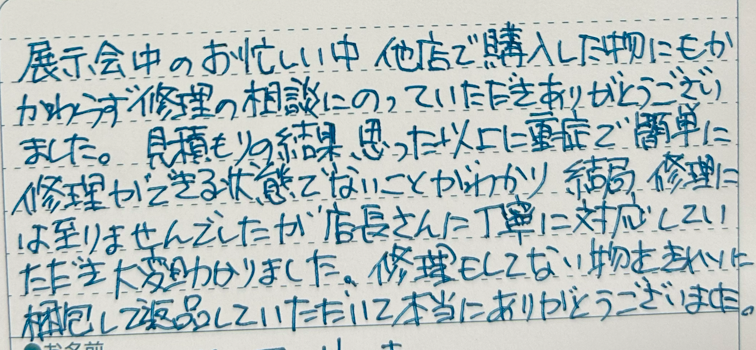 展示会中のお忙しい中 他店で購入した物にもか
かわらず修理の相談にのっていただきありがとうござい
ました。 見積もりの結果、思った以上に重症で簡単に
修理ができる状態でないことがわかり 結局 修理に
は至りませんでしたが店長さんに丁寧に対応してい
ただき大変助かりました。修理もしてない物をきれいに
梱包して返品していただいて本当にありがとうございました。
お名前